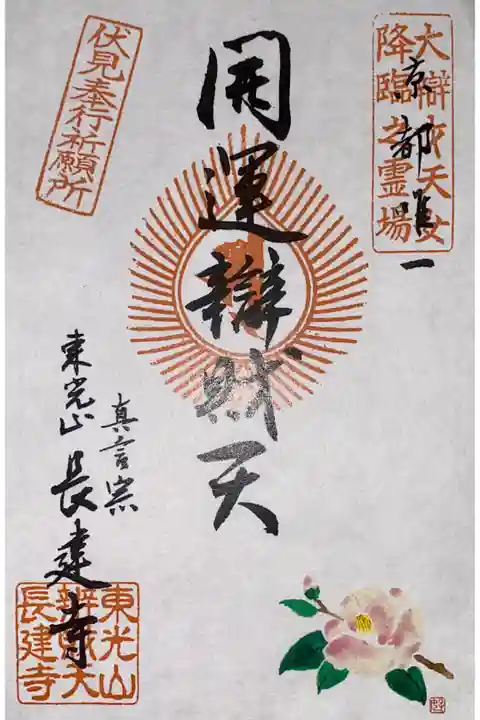 大辯才天女
降臨之霊場
京都唯一
開運辯財天
伏見奉行祈願所
真言宗
東光山 長建寺
東光山
長建寺